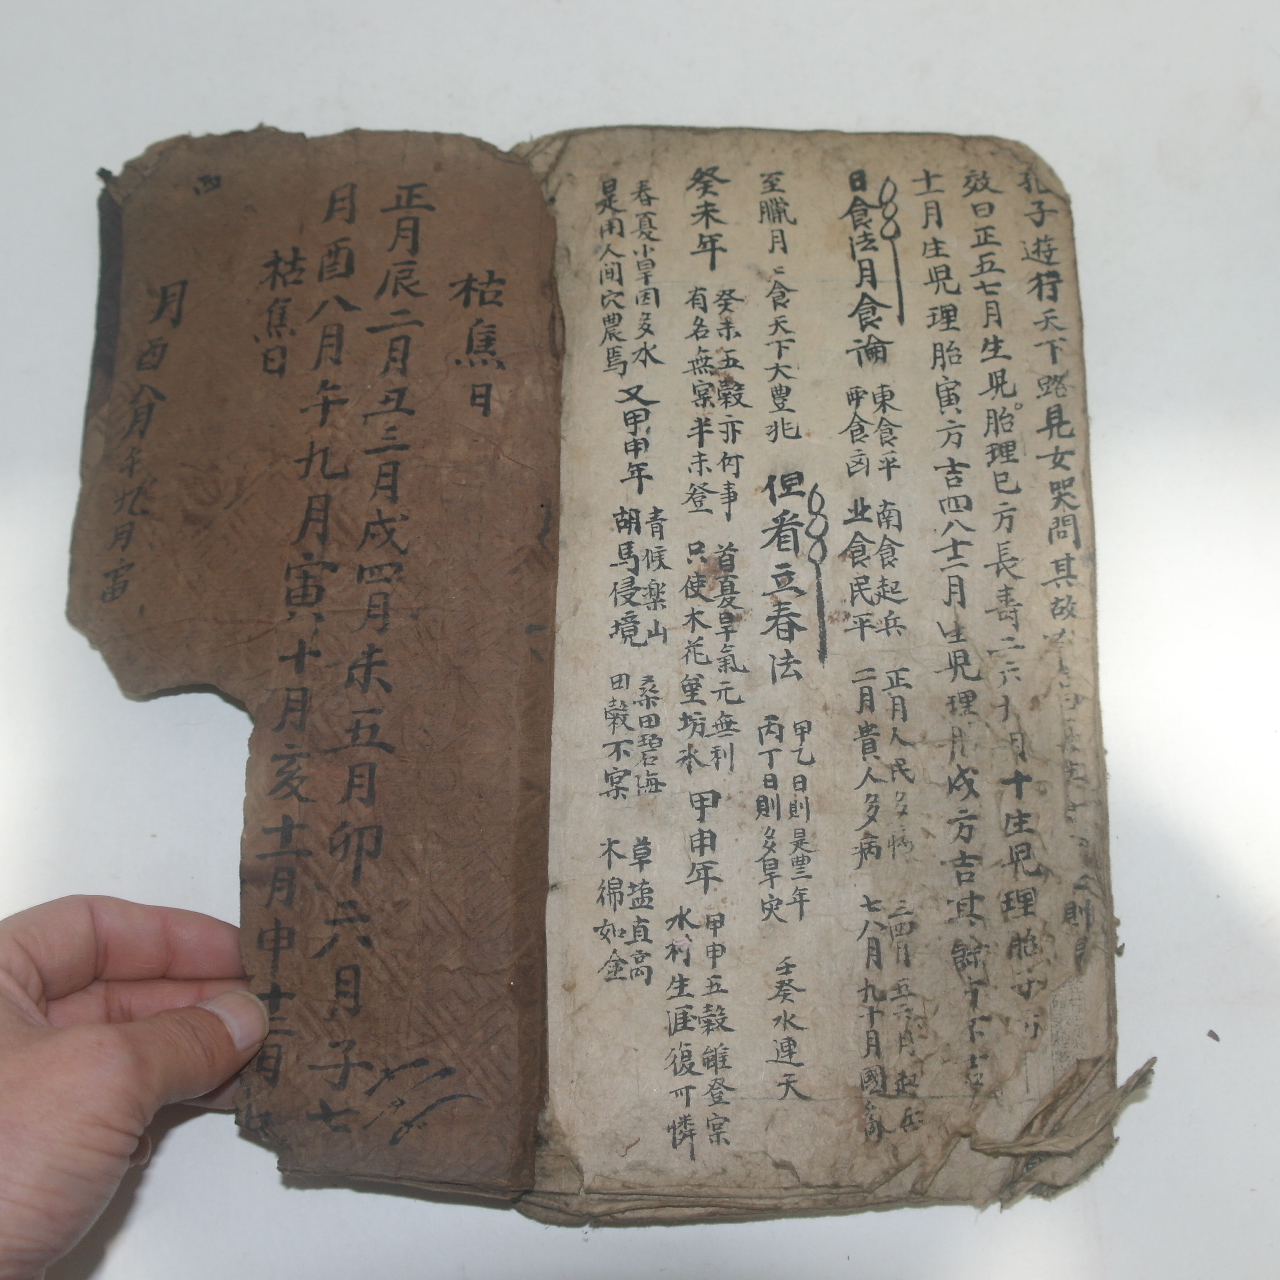 孔子遊行天下路見女哭問其故
效曰正五七月生児胎理巳方長壽二六十月十生児理胎
十月生児理胎寅方吉四八十二月生児理胎戌方吉其餘方不吉
日食法月食論 東食平 南食起兵 正月人民多病 三四月五六月起兵
西食凶 北食民平 二月貴人多病 七八月九十月國
至臘月月食天下大豊兆 但看立春法 甲乙日則是豊年
丙丁日則多旱灾 壬癸水連天
癸未年 癸未五穀亦何事 首夏旱氣元無利
有名無宲半未登 只使木花坊氷
甲申年 甲申五穀雖登宲
水村生涯復可憐
春夏小旱因多水
是用人間穴農焉
又甲申年 青候楽山 桑田碧海 草塩直高
胡馬侵境 田穀不宲 木綿如金
枯焦日
正月辰二月丑三月戌四月未五月卯六月子七
月酉八月午九月寅十月亥十一月申十二月
枯焦日
月酉八月午九月寅